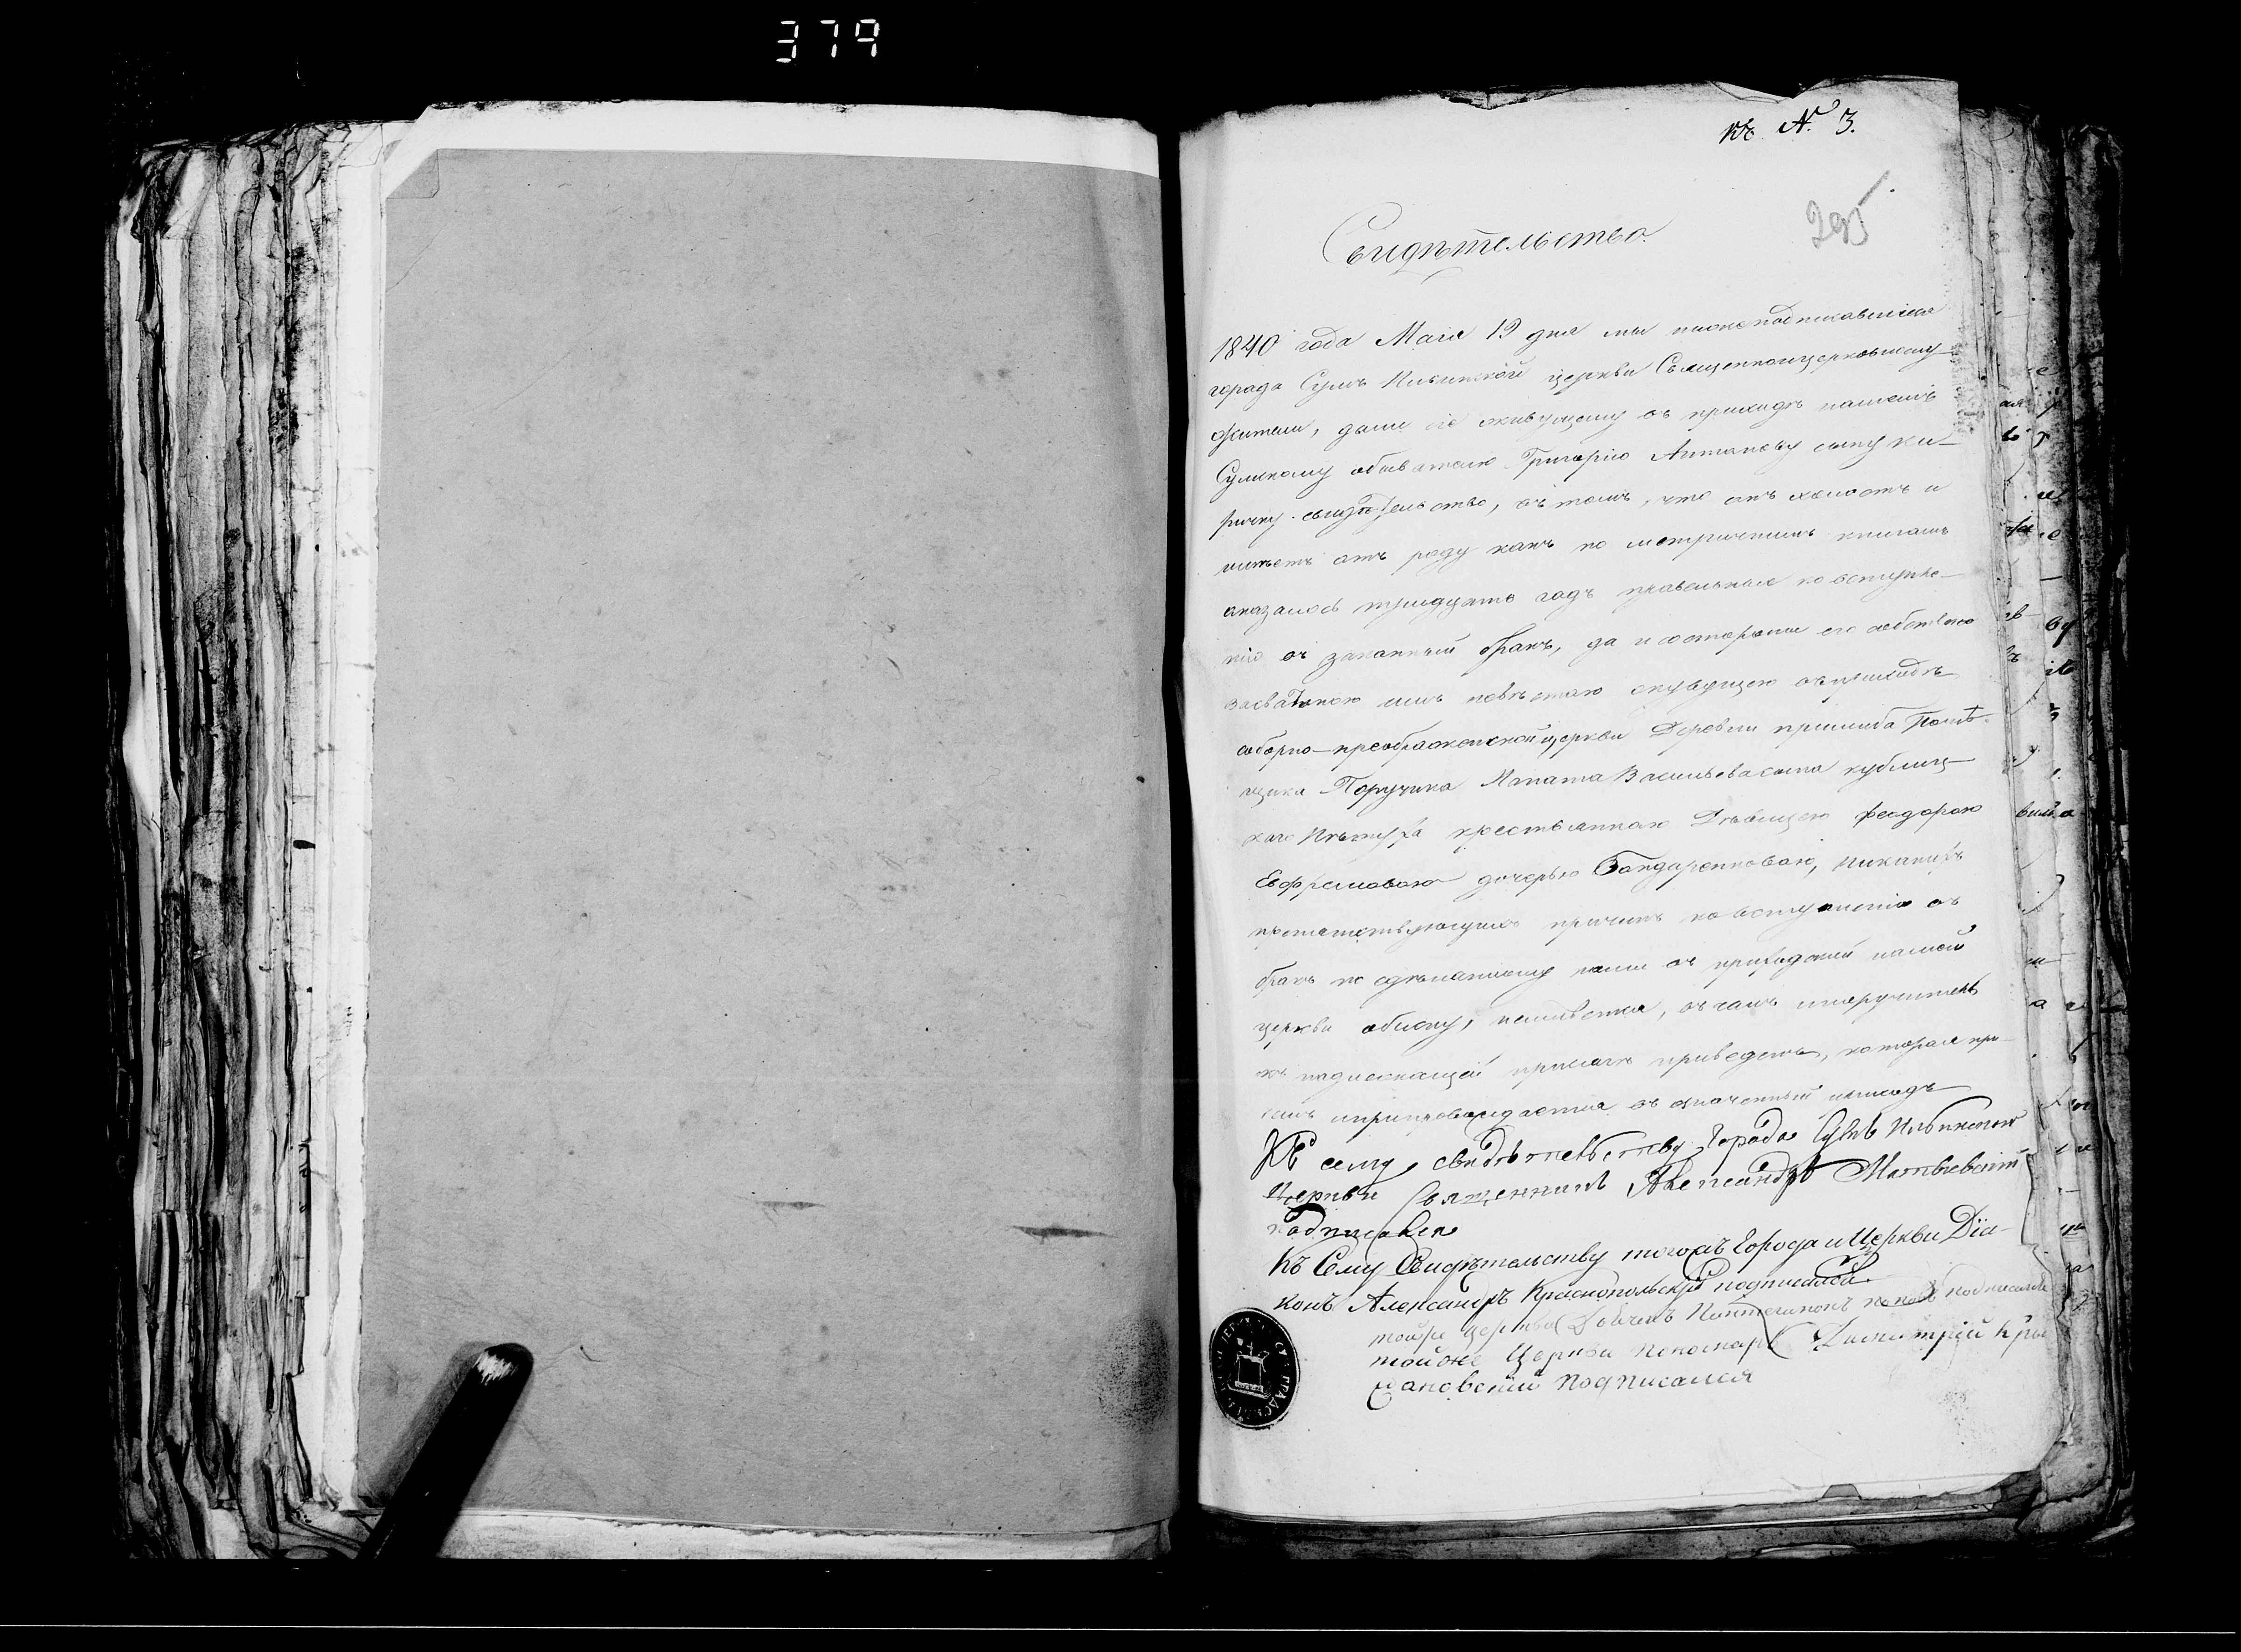 379
къ №. 3.
295
Свидѣтельство.
1840 года Маія 19 дня мы нижеподписавшіеся
города Сумъ Ильинской церкви Священноцерковнослу
жители, дали сіе живущему въ приходѣ нашемъ
Сумскому обывателю Григорію Антонову сыну Ки
ричку свидѣтельство, въ томъ, что онъ холостъ и
имѣетъ отъ роду какъ по метричнымъ книгамъ
оказалось тридцать годъ правильныя ко вступле
нію въ законный бракъ, да и состороны его
засватаною имъ невѣстою жывущею въ приходѣ
соборно-преображенской церкви Деревни Помѣ
щика Порутчика Васильева сына
крестьянкою Дѣвицею Феодорою
Евфремовою дочерью Бондаренковою, никакихъ
препятствующихъ причинъ ко вступленію въ
бракъ по сдѣланному нами въ приходской нашей
церкви обыску, въ чемъ
къ надлежащей присягѣ приведенъ, которая при
семъ и препровождается въ означенный приходъ
Къ сему свидѣтельству города Сумъ Ильинской
Церкви Священникъ Александръ Матвѣевскій
подписался
Къ Сему Свидѣтельству тогожъ Города и Церкви Діа-
конъ Александръ Краснопольскій подписался.
тойже церкви Дьячекъ Поповъ подписался
тойже Церкви Пономарь Димитрій Кры
жановскій подписался